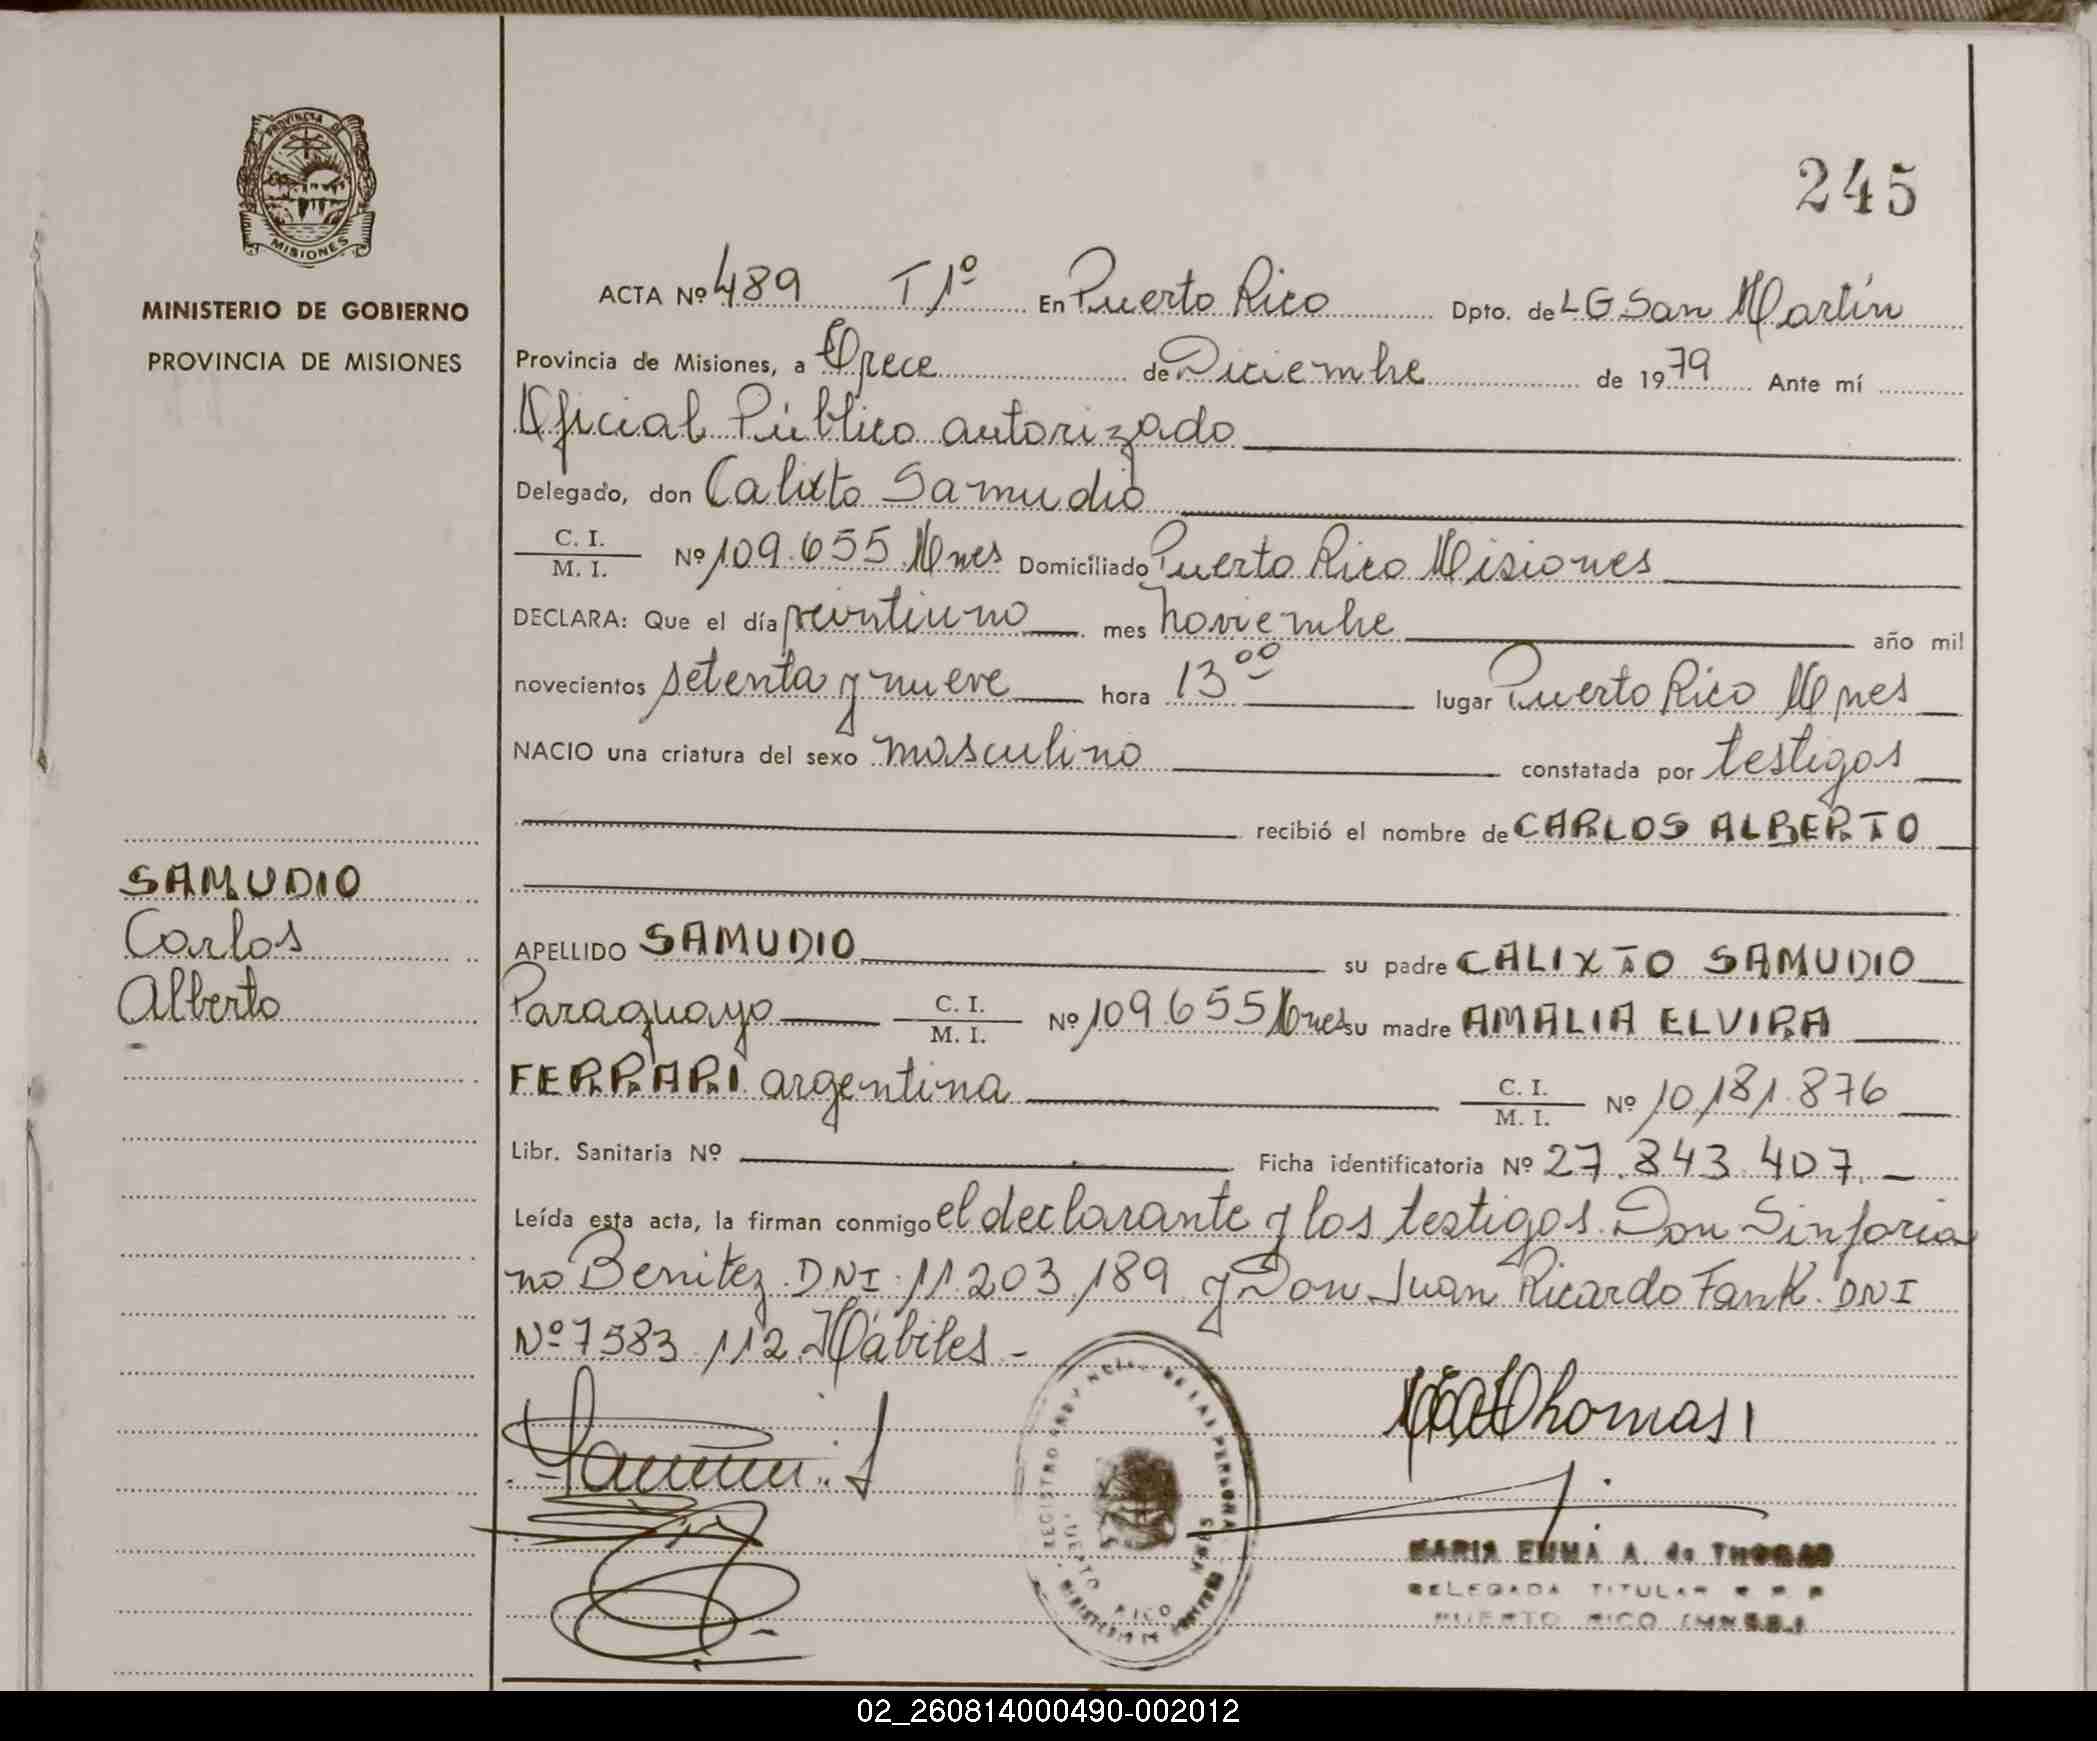 PROVINCIA DE
MISIONES
MINISTERIO DE GOBIERNO
PROVINCIA DE MISIONES
245
ACTA Nº 489 T 1º En Puerto Rico Dpto. de L G San Martín
Provincia de Misiones, a Trece de Diciembre de 1979 Ante mí
Oficial Público autorizado
Delegado, don Calixto Samudio
C. I.
M. I. Nº 109.655 Mnes Domiciliado Puerto Rico Misiones
DECLARA: Que el día veintiuno mes noviembre año mil
novecientos setenta y nueve hora 13 00 lugar Puerto Rico Mnes
NACIO una criatura del sexo masculino constatada por testigos
recibió el nombre de CARLOS ALBERTO
SAMUDIO
Carlos
Alberto
APELLIDO SAMUDIO su padre CALIXTO SAMUDIO
Paraguayo C. I.
M. I. Nº 109.655 Mnes su madre AMALIA ELVIRA
FERRARI argentina C. I.
M. I. Nº 10.181.876
Libr. Sanitaria Nº Ficha identificatoria Nº 27.843.407.-
Leída esta acta, la firman conmigo el declarante y los testigos Don Sinforia
no Benitez DNI 11.203.189 y Don Juan Ricardo Fank DNI
Nº 7.583.112 Hábiles -
REGISTRO PROVINCIAL DE LAS PERSONAS
PUERTO RICO
MARIA EMMA A. de THOMAS
DELEGADA TITULAR R P P
PUERTO RICO (MNES.)
02_260814000490-002012